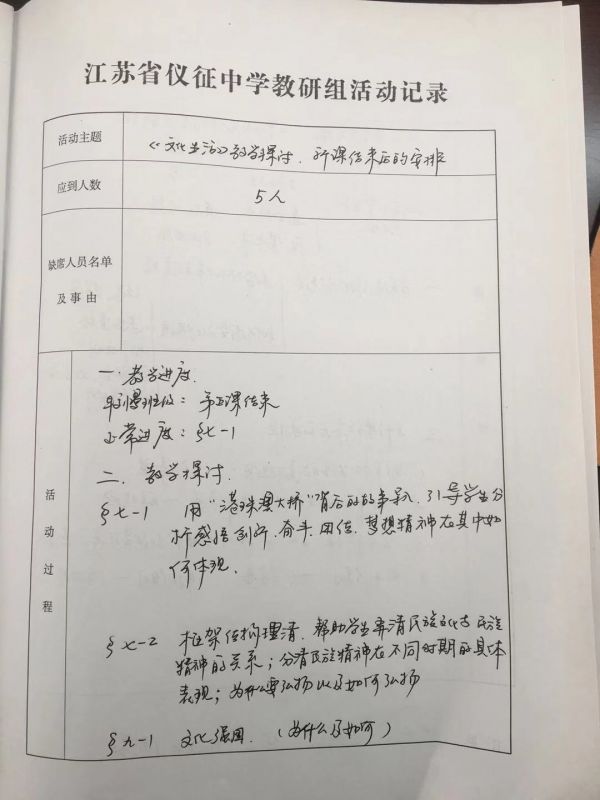 江苏省仪征中学教研组活动记录
活动主题
《文化生活》教学探讨、新课结束后的安排
应到人数
5人
缺席人员名单
及事由
活动过程
一、教学进度
慢班级：第五课结束
正常进度：§七-1
二、教学探讨
§七-1 用“港珠澳大桥”背后的故事导入，引导学生分
析感悟创新、奋斗、团结、梦想精神在其中如
何体现。
§七-2 框架结构理清，帮助学生弄清民族文化与民族
精神的关系；分清民族精神在不同时期的具体
表现；为什么要弘扬以及如何弘扬
§九-1 文化强国。（为什么及如何）